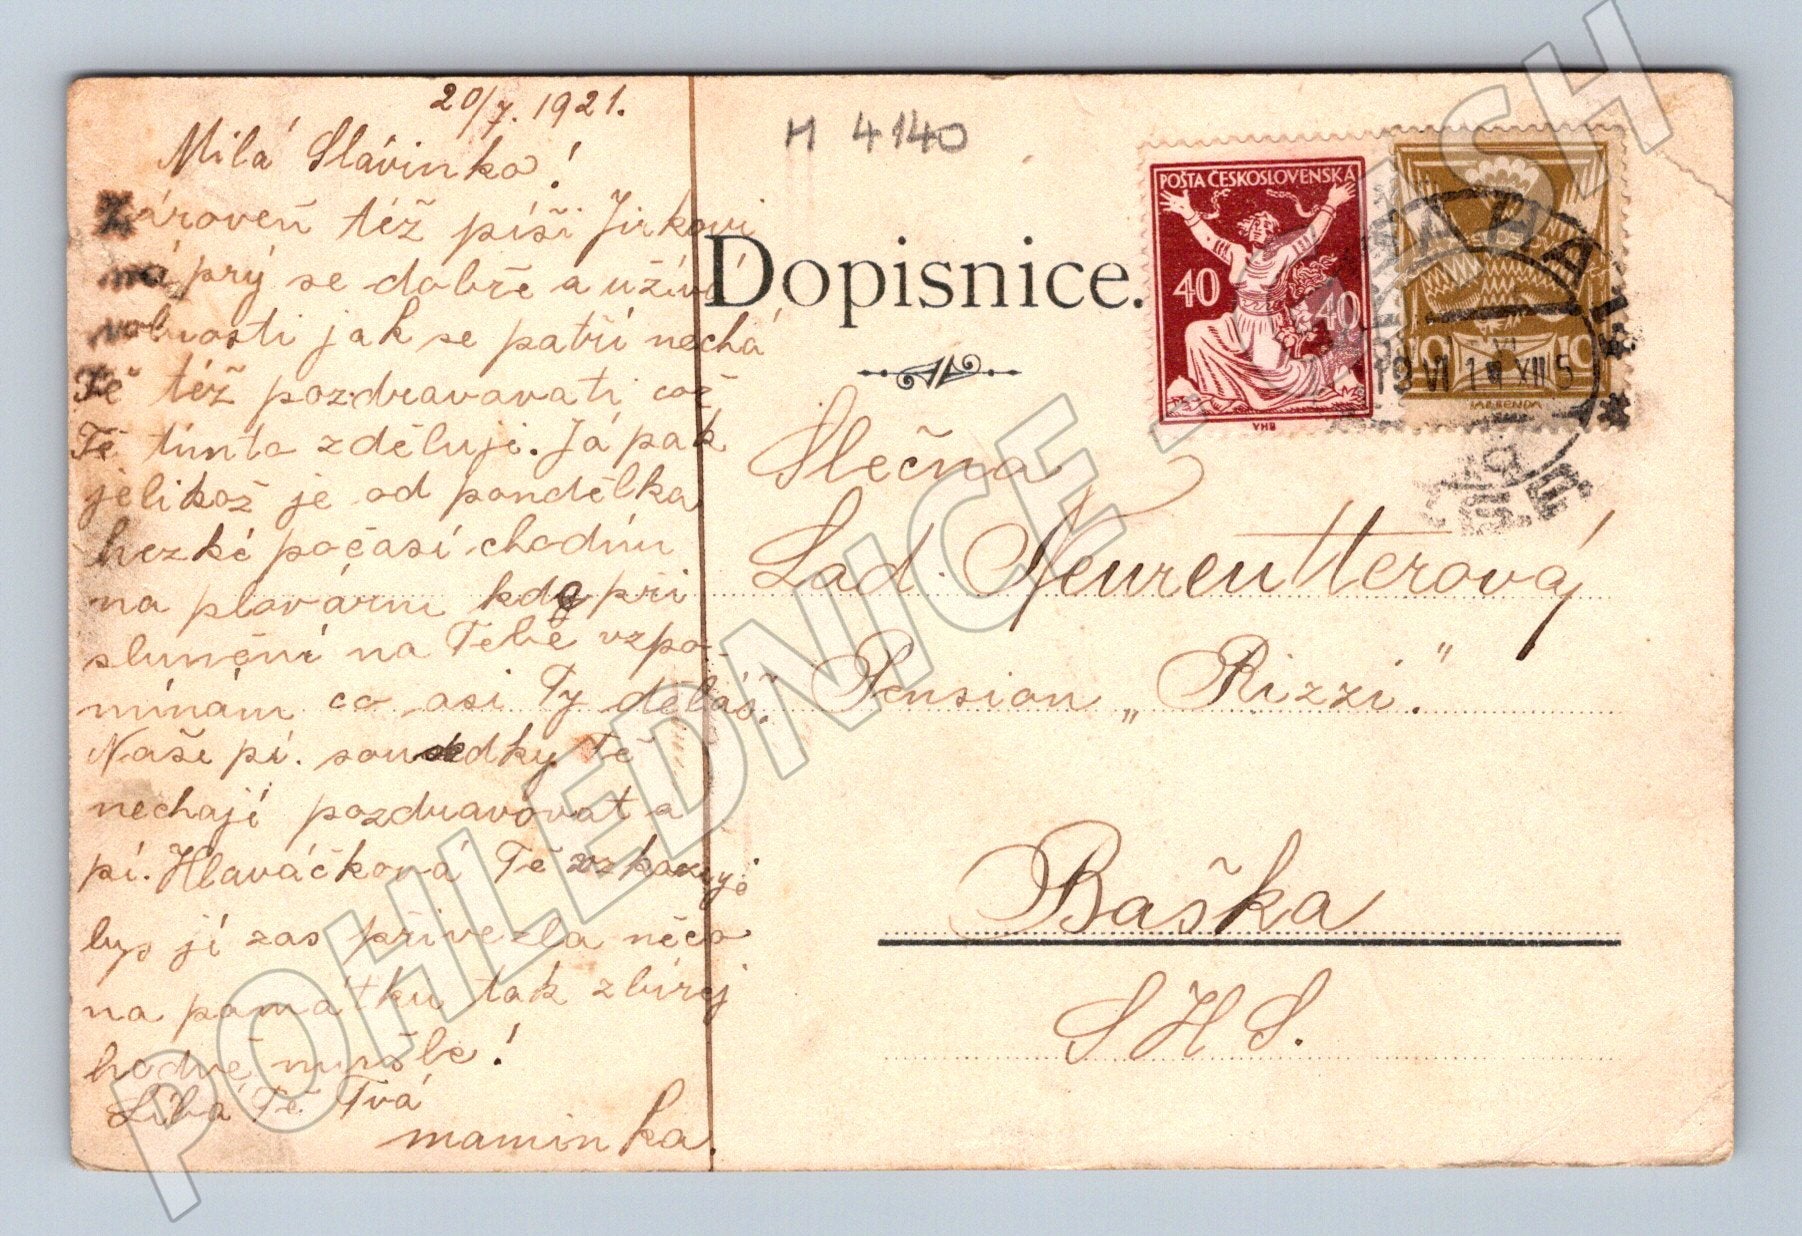 20/7. 1921.
Milá Slávinko!
Zároveň též píši Jirkovi
má prý se dobře a užívá
volnosti jak se patří nechá
Tě též pozdravovati což
Tě tímto zděluji. Já pak
jelikož je od pondělka
hezké počasí chodím
na plovárni kde při
slunění na Tebe vzpo-
mínám co asi Ty děláš.
Naše pí. sousedky Tě
nechají pozdravovat a
pí. Hlaváčková Tě vzkazuje
bys jí zas přivezla něco
na památku tak zbírej
hodně mušle!
Líbá Tě Tvá
maminka.
M 4140
Dopisnice.
POŠTA ČESKOSLOVENSKÁ
40 40
VHB
10 10
Slečna
Lad. Neureutterová
Pension „Rizzi."
Baška
S H S.
POHLEDNICE